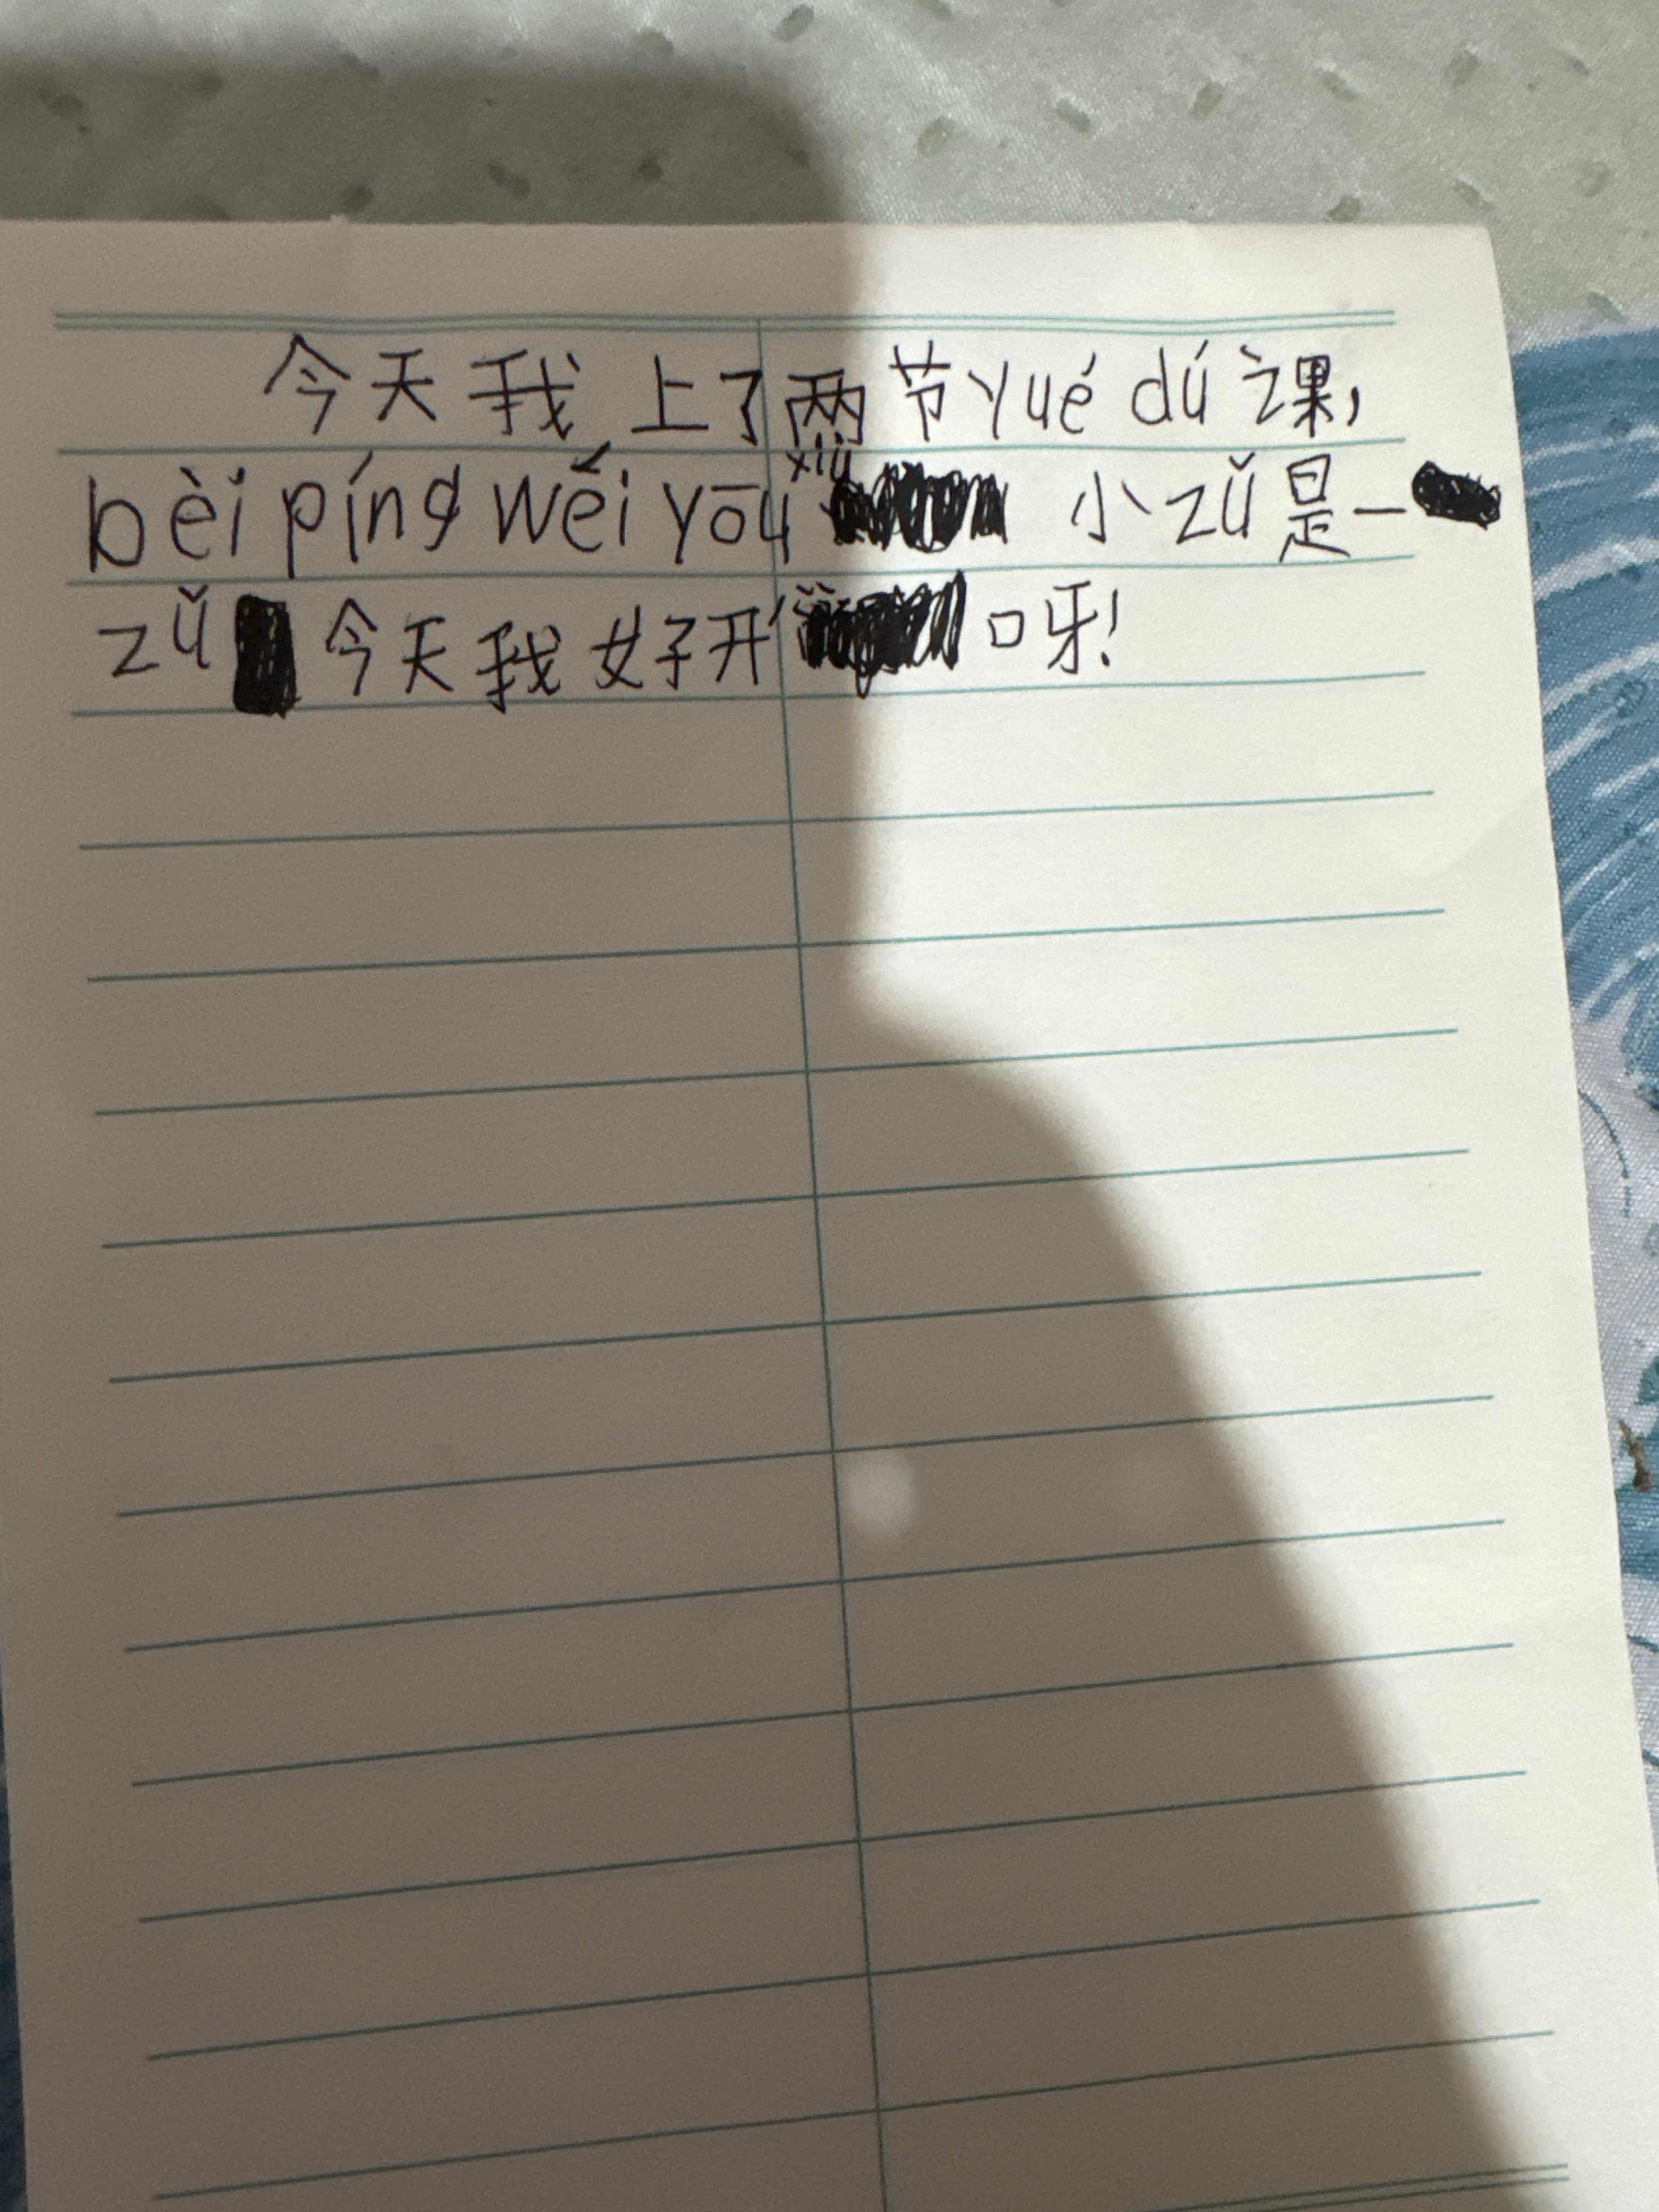 今天我上了两节yué dú课,
bèi píng wěi yōu xiù 小zǔ是一
zǔ 今天我好开 口牙!